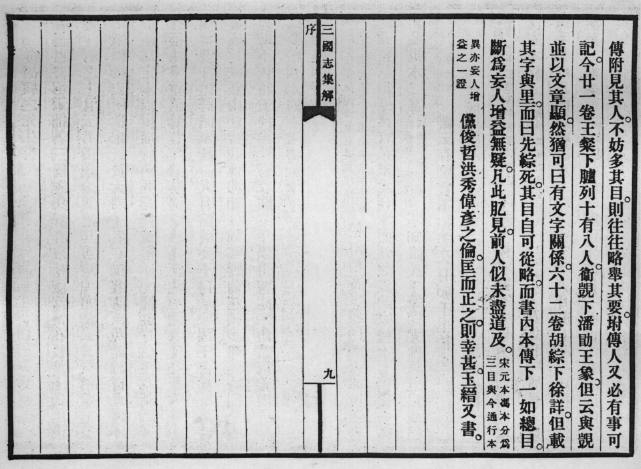 傳附見其人。不妨多其目。則往往略舉其要。坿傳人又必有事可
記。今廿一卷王粲下臚列十有八人。衛覬下潘勖王象。但云與覬
並以文章顯。然猶可曰有文字關係。六十二卷胡綜下徐詳。但載
其字與里。而曰先綜死。其目自可從略。而書內本傳下一如總目。
斷爲妄人增益無疑。凡此肊見。前人似未盡道及。宋元本馮本分爲三目與今通行本
異亦妄人增益之一證 儻俊哲洪秀偉彥之倫。匡而正之。則幸甚。玉縉又書。
三國志集解
序
九